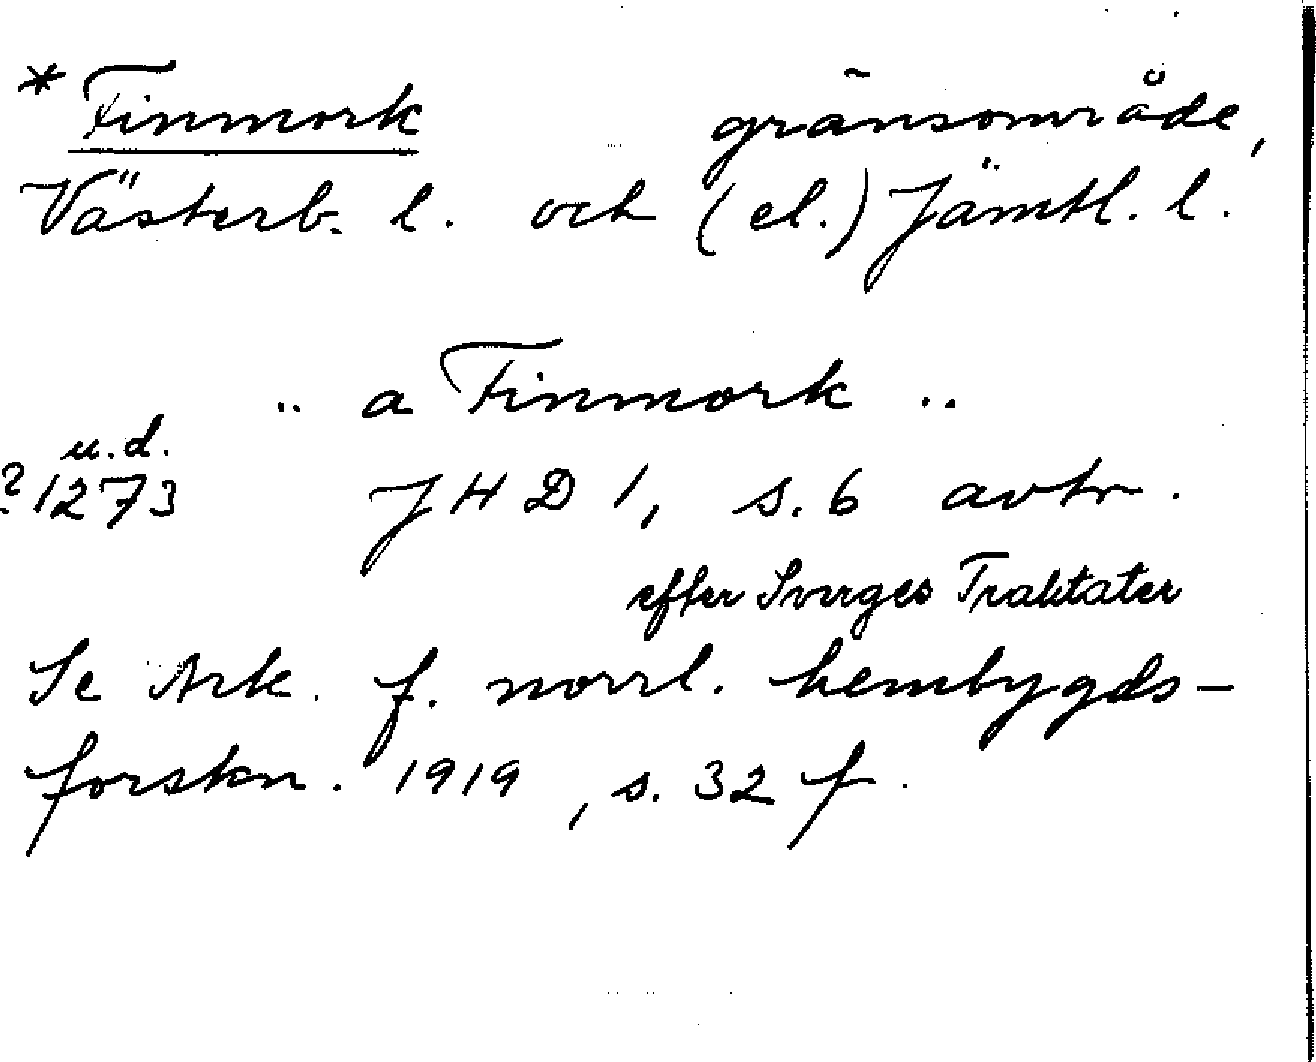 * Finmork gränsområde,
Västerb. l. och (el.) Jämtl. l.
.. a Finmork ..
u.d.
? 1273 JHD 1, s. 6 avtr.
efter Sverges Traktater
Se Ark. f. norrl. hembygds-
forskn. 1919, s. 32 f.